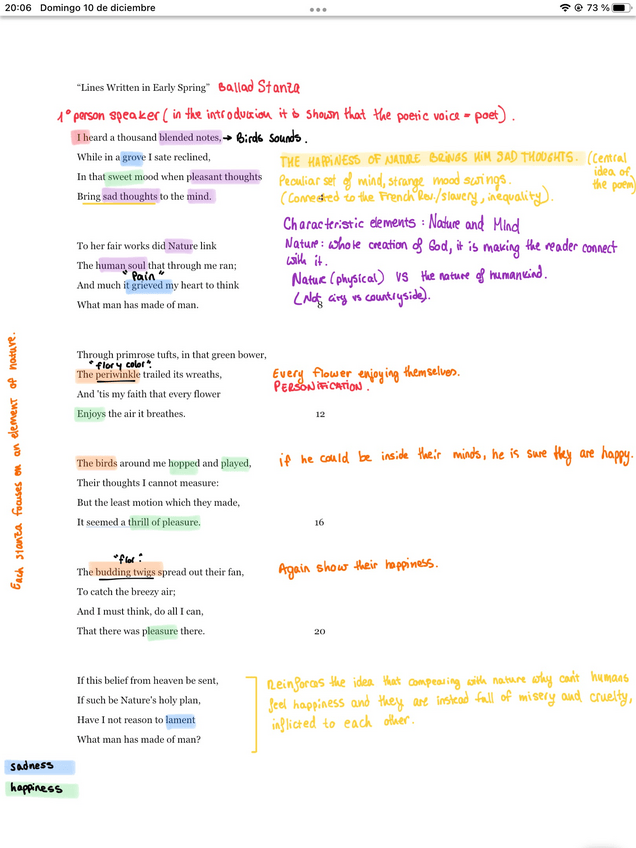 20:06 Domingo 10 de diciembre
73 %
“Lines Written in Early Spring” Ballad Stanza
1º person speaker (in the introduction it is shown that the poetic voice = poet).
I heard a thousand blended notes, → Birds sounds.
While in a grove I sate reclined,
In that sweet mood when pleasant thoughts
Bring sad thoughts to the mind.
4
THE HAPPINESS OF NATURE BRINGS HIM SAD THOUGHTS. (Central idea of the poem)
Peculiar set of mind, strange mood swings.
(Connected to the French Rev./slavery, inequality).
Characteristic elements: Nature and Mind
Nature: whole creation of God, it is making the reader connect
with it.
Nature (physical) VS the nature of humankind.
(Not city vs countryside).
To her fair works did Nature link
The human soul that through me ran;
"Pain"
And much it grieved my heart to think
What man has made of man.
8
Each stanza focuses on an element of nature.
Through primrose tufts, in that green bower,
"flor y color".
The periwinkle trailed its wreaths,
And 'tis my faith that every flower
Enjoys the air it breathes.
12
Every flower enjoying themselves.
PERSONIFICATION.
The birds around me hopped and played,
Their thoughts I cannot measure:
But the least motion which they made,
It seemed a thrill of pleasure.
16
if he could be inside their minds, he is sure they are happy.
"flor".
The budding twigs spread out their fan,
To catch the breezy air;
And I must think, do all I can,
That there was pleasure there.
20
Again show their happiness.
If this belief from heaven be sent,
If such be Nature's holy plan,
Have I not reason to lament
What man has made of man?
Reinforces the idea that compearing with nature why can't humans
feel happiness and they are instead full of misery and cruelty,
inflicted to each other.
sadness
happiness